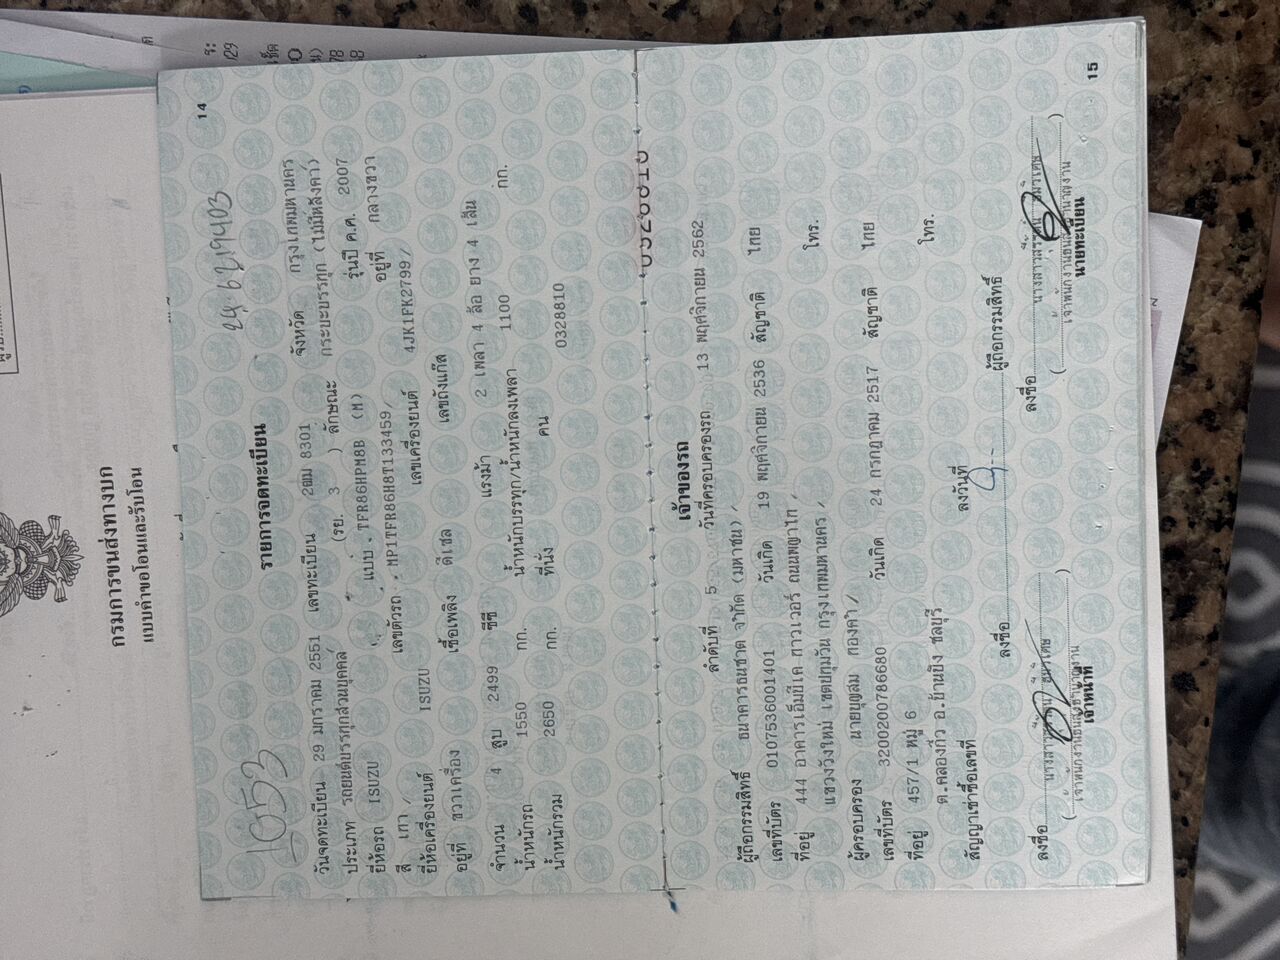 กรมการขนส่งทางบก
แบบคำขอโอนและรับโอน
14
1653
24.6219403
รายการจดทะเบียน
วันจดทะเบียน 29 มกราคม 2551 เลขทะเบียน 2ฒม 8301 จังหวัด กรุงเทพมหานคร
ประเภท รถยนต์บรรทุกส่วนบุคคล (รย. 3 ) ลักษณะ กระบะบรรทุก (ไม่มีหลังคา)
ยี่ห้อรถ ISUZU แบบ TFR86HPM8B (M) รุ่นปี ค.ศ. 2007
สี เทา/ เลขตัวรถ MP1TFR86H8T133459/ อยู่ที่ กลางขวา
ยี่ห้อเครื่องยนต์ ISUZU เลขเครื่องยนต์ 4JK1FK2799/
อยู่ที่ ขวาเครื่อง เชื้อเพลิง ดีเซล เลขถังแก๊ส
จำนวน 4 สูบ 2499 ซีซี แรงม้า 2 เพลา 4 ล้อ ยาง 4 เส้น
น้ำหนักรถ 1550 กก. น้ำหนักบรรทุก/น้ำหนักลงเพลา 1100 กก.
น้ำหนักรวม 2650 กก. ที่นั่ง คน 0328810
เจ้าของรถ
ลำดับที่ 5 วันที่ครอบครองรถ 13 พฤศจิกายน 2562
ผู้ถือกรรมสิทธิ์ ธนาคารธนชาต จำกัด (มหาชน)/
เลขที่บัตร 0107536001401 วันเกิด 19 พฤศจิกายน 2536 สัญชาติ ไทย
ที่อยู่ 444 อาคารเอ็มบีเค ทาวเวอร์ ถนนพญาไท/ โทร.
แขวงวังใหม่ เขตปทุมวัน กรุงเทพมหานคร/
ผู้ครอบครอง นายบุญสม ทองคำ/
เลขที่บัตร 3200200786680 วันเกิด 24 กรกฎาคม 2517 สัญชาติ ไทย
ที่อยู่ 457/1 หมู่ 6 โทร.
ต.คลองกิ่ว อ.บ้านบึง ชลบุรี
สัญญาเช่าซื้อเลขที่ ลงวันที่
ลงชื่อ ผู้ถือกรรมสิทธิ์
ลงชื่อ ลงชื่อ
เจ้าหน้าที่ นายทะเบียน
15